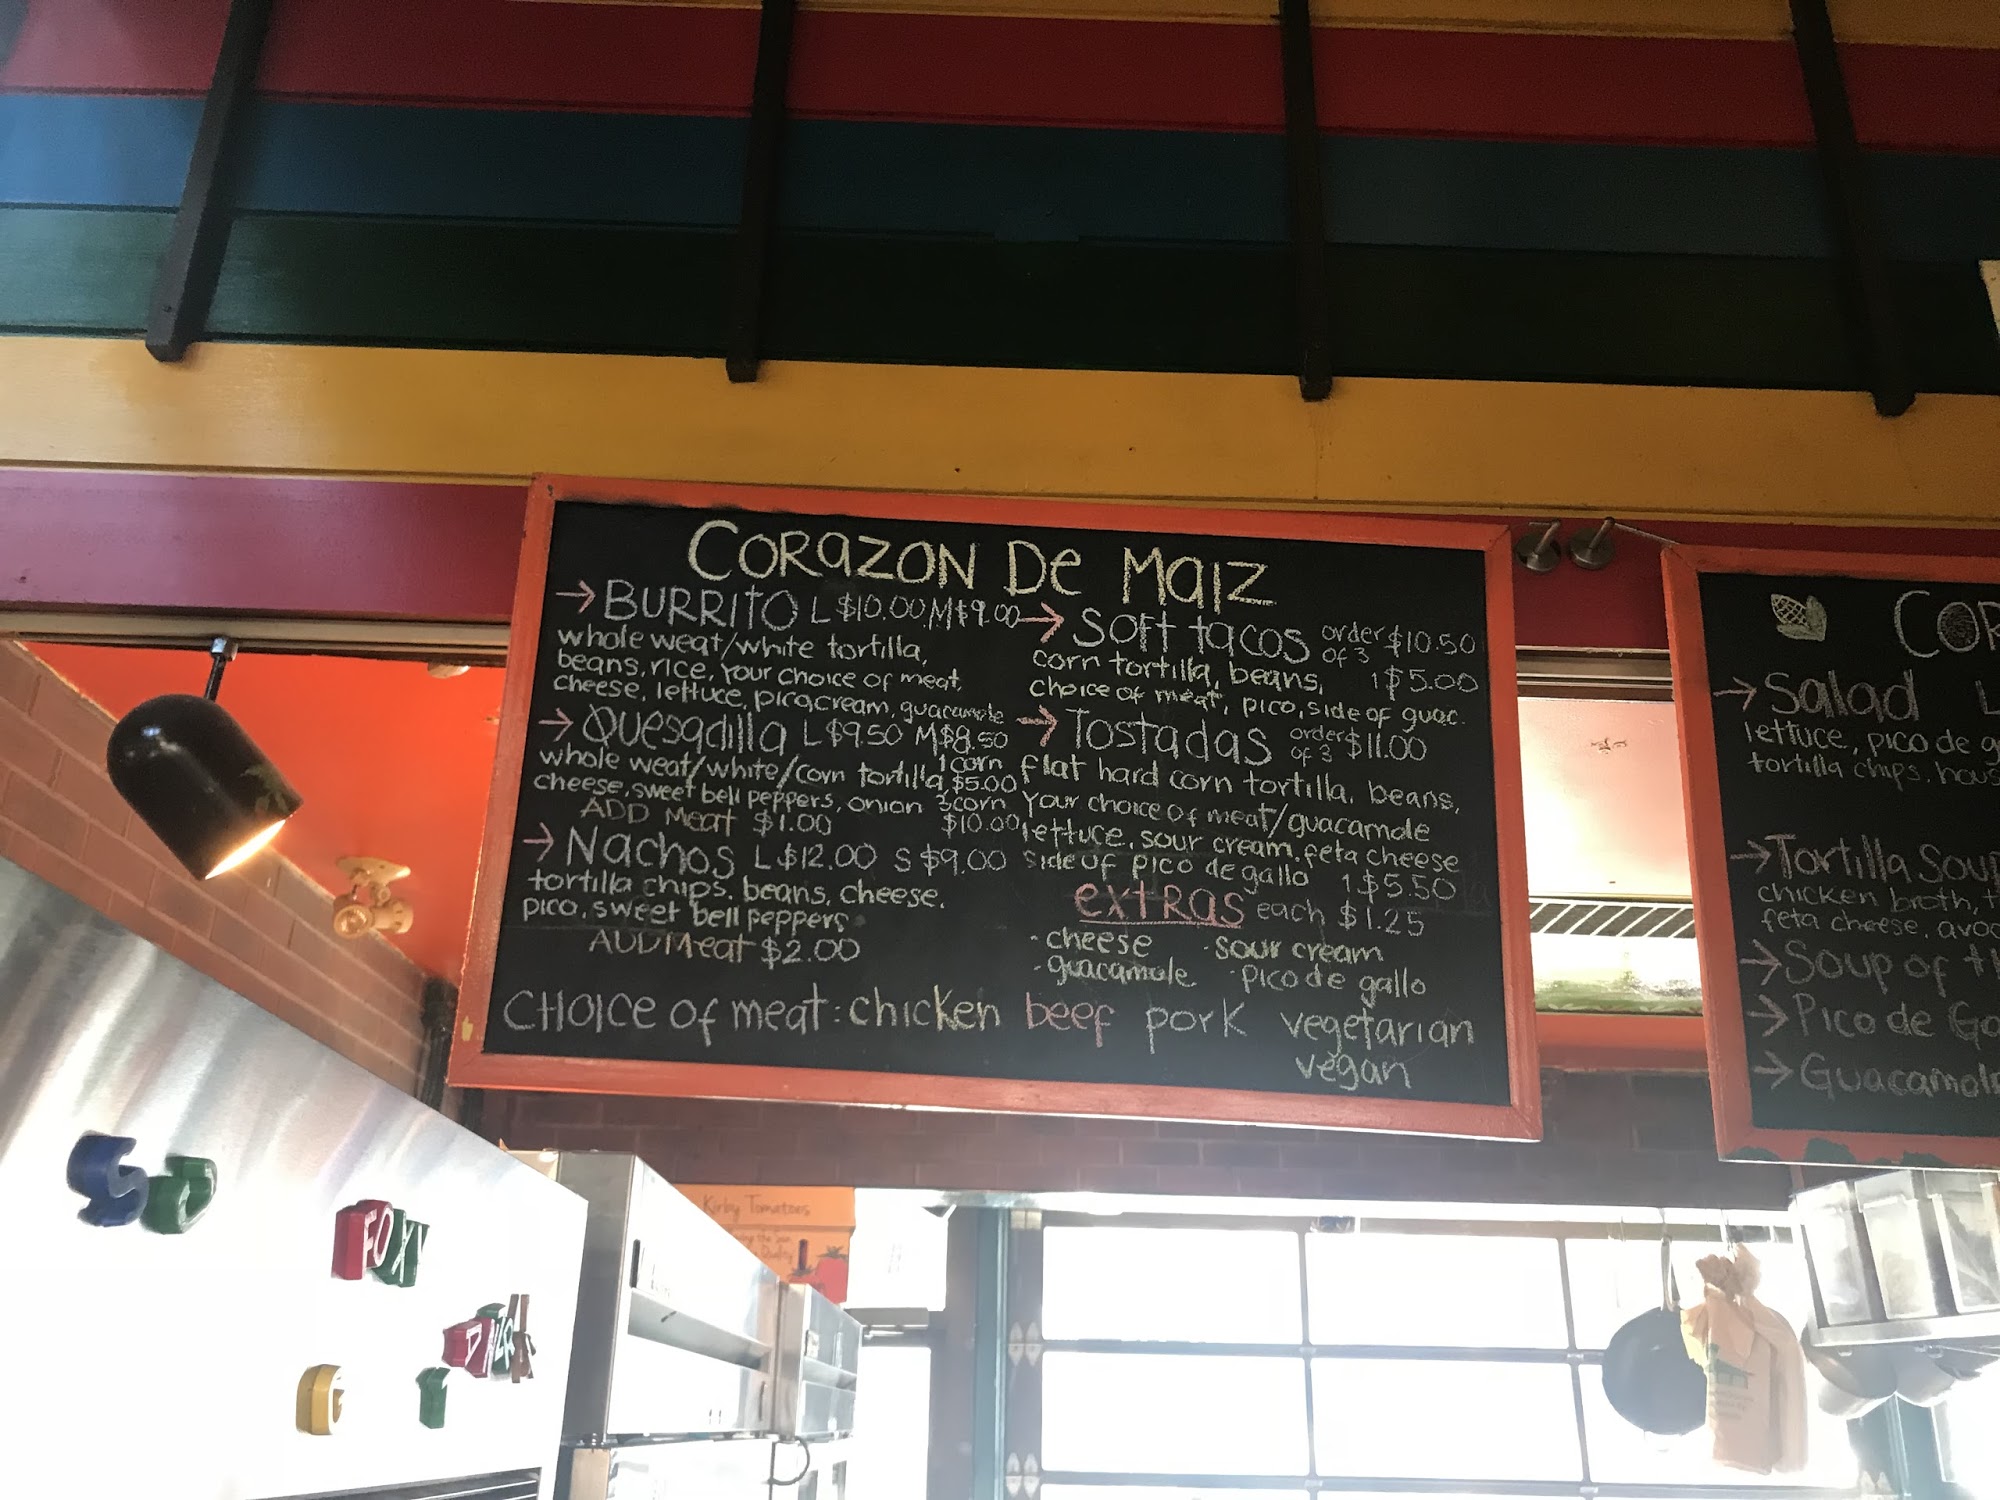 CORAZON DE MAIZ
→ BURRITO L $10.00 M $9.00
whole weat/white tortilla,
beans, rice, Your choice of meat,
cheese, lettuce, pico, cream, guacamole
→ Quesadilla L $9.50 M $8.50
whole weat/white/corn tortilla, 1 corn $5.00
cheese, sweet bell peppers, onion 3 corn
ADD Meat $1.00 $10.00
→ Nachos L $12.00 S $9.00
tortilla chips, beans, cheese.
pico, sweet bell peppers.
ADD Meat $2.00
→ Soft tacos order of 3 $10.50
corn tortilla, beans, 1 $5.00
choice of meat, pico, side of guac.
→ Tostadas order of 3 $11.00
flat hard corn tortilla, beans,
Your choice of meat/guacamole
lettuce, sour cream, feta cheese
side of pico de gallo 1 $5.50
extras each $1.25
- cheese - sour cream
- guacamole - pico de gallo
CHOICE of meat: chicken beef pork vegetarian
vegan
→ Salad L
lettuce, pico de
tortilla chips,
→ Tortilla Soup
chicken broth,
feta cheese,
→ Soup of
→ Pico de
→ Guacamole
Kirby Tomatoes
Quality
S
FOXY
G